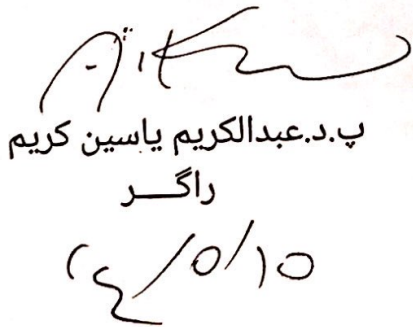 پ.د.عبدالكريم ياسين كريم
راگـــر
٢٤/٥/١٥